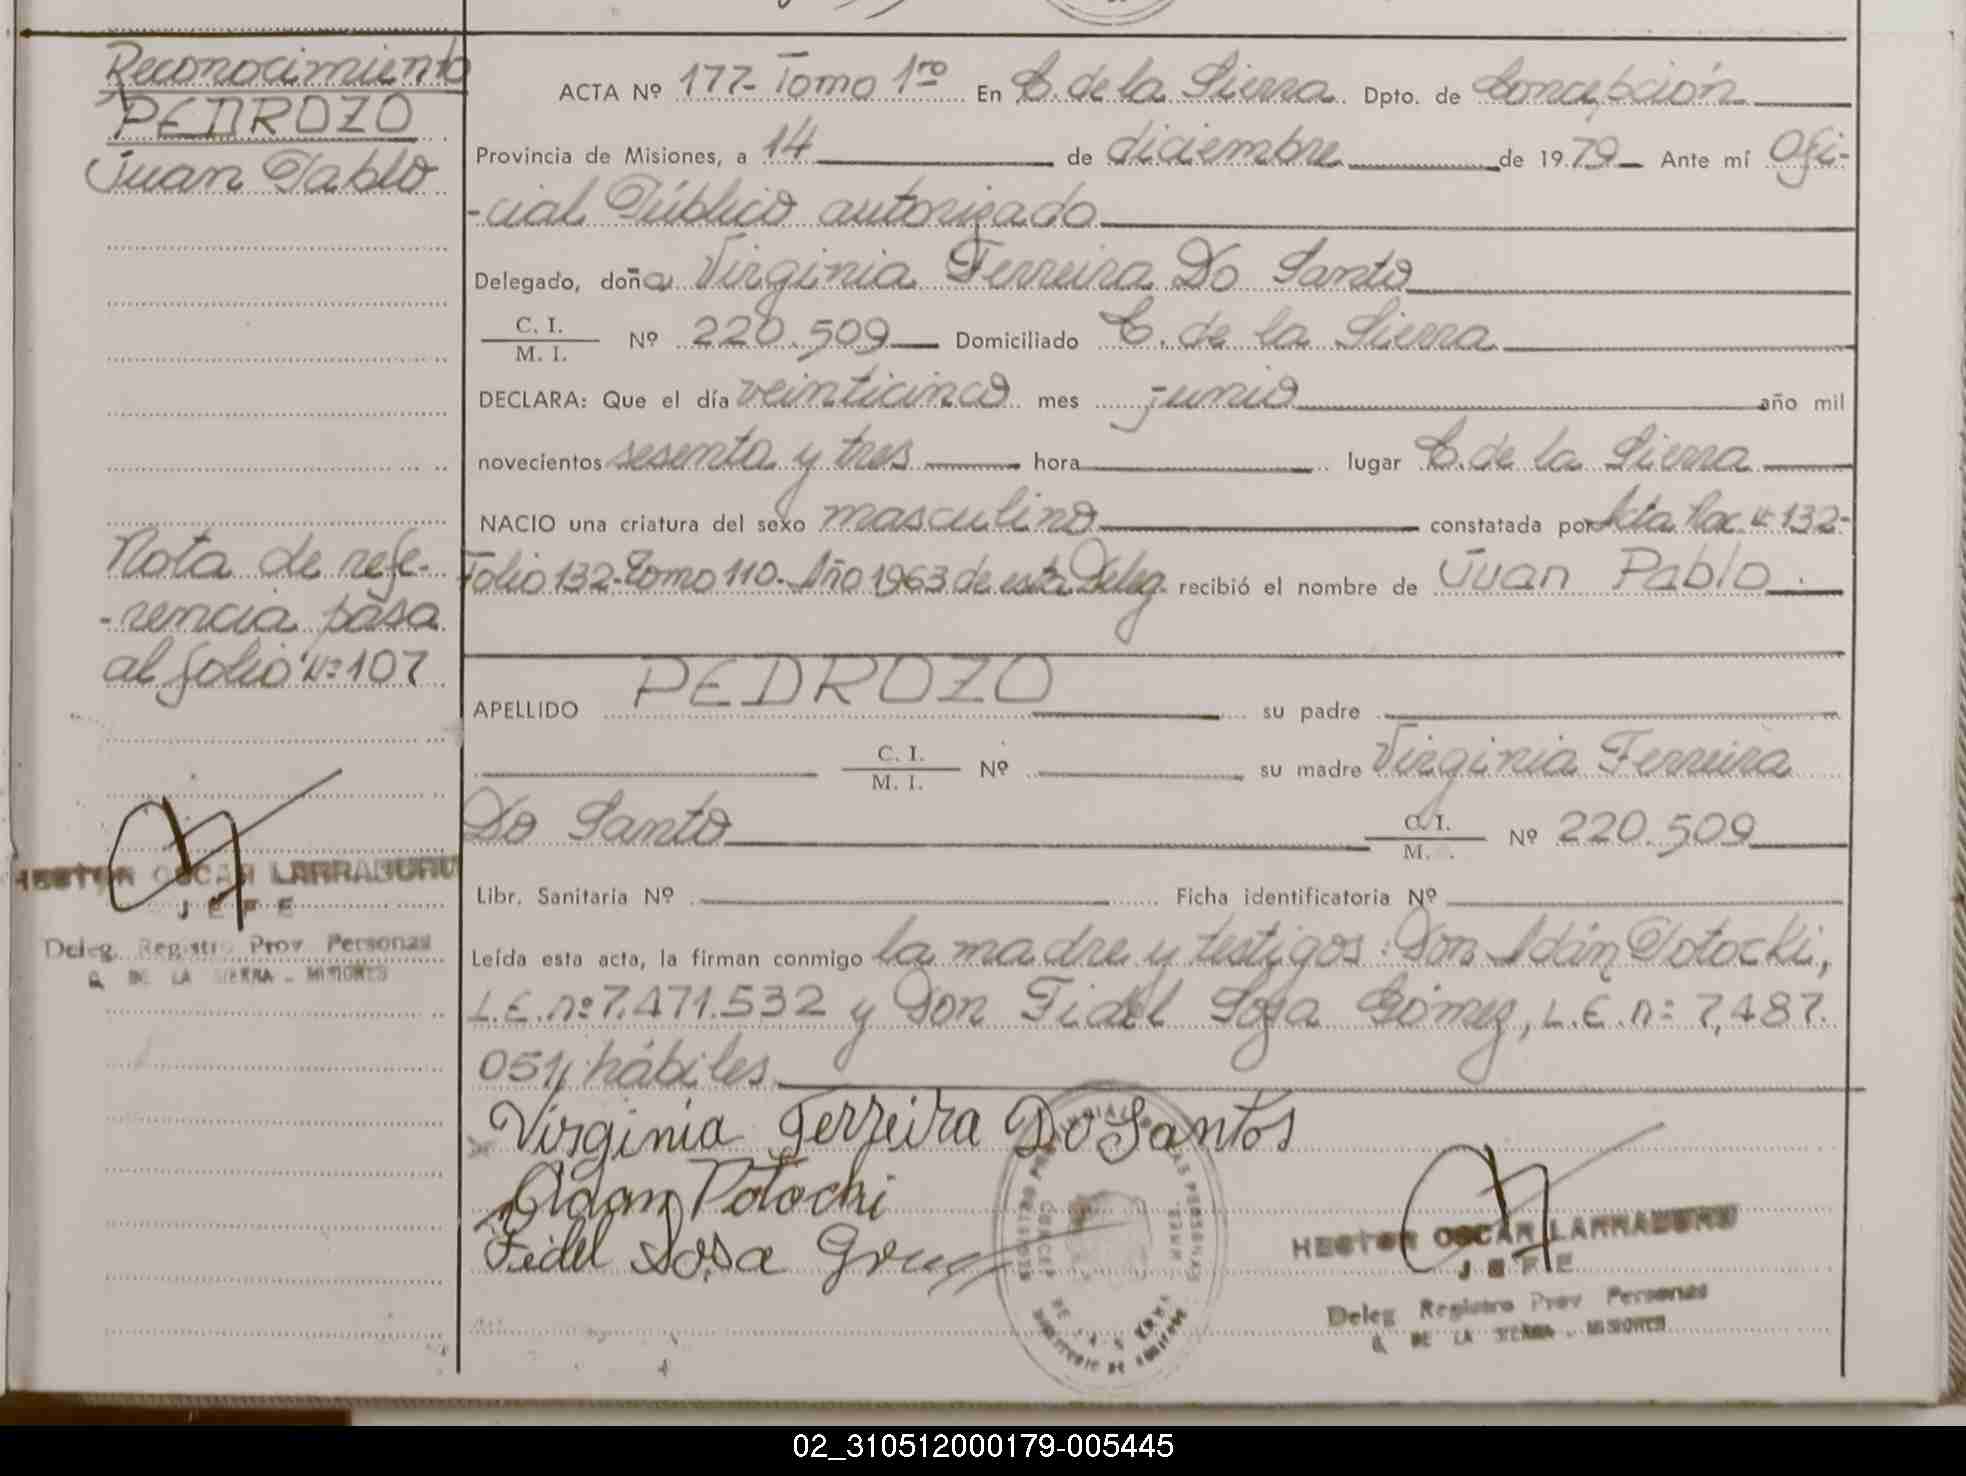 Reconocimiento
PEDROZO
Juan Pablo
Nota de refe-
-rencia pasa
al folio Nº 107
HECTOR OSCAR LARRABURU
JEFE
Deleg. Registro Prov Personas
C. DE LA SIERRA - MISIONES
ACTA Nº 177- Tomo 1ro En C. de la Sierra. Dpto. de Concepción
Provincia de Misiones, a 14 de diciembre de 1979 Ante mí Ofi-
-cial Público autorizado
Delegado, doña Virginia Ferreira Do Santo
C. I. / M. I. Nº 220.509 Domiciliado C. de la Sierra
DECLARA: Que el día veinticinco mes junio año mil
novecientos sesenta y tres hora lugar C. de la Sierra
NACIO una criatura del sexo masculino constatada por Acta Nac. nº 132-
Folio 132-Tomo 110-Año 1963 de esta Deleg. recibió el nombre de Juan Pablo.
APELLIDO PEDROZO su padre
C. I. / M. I. Nº su madre Virginia Ferreira
Do Santo C. I. / M. I. Nº 220.509
Libr. Sanitaria Nº Ficha identificatoria Nº
Leída esta acta, la firman conmigo la madre y testigos: Don Adán Potocki,
L.E. nº 7.471.532 y Don Fidel Sosa Gómez, L.E. nº 7,487.
051, hábiles.
Virginia Ferreira Do Santos
Adan Potocki
Fidel Sosa
HECTOR OSCAR LARRABURU
JEFE
Deleg Registro Prov Personas
C. DE LA SIERRA - MISIONES
02_310512000179-005445